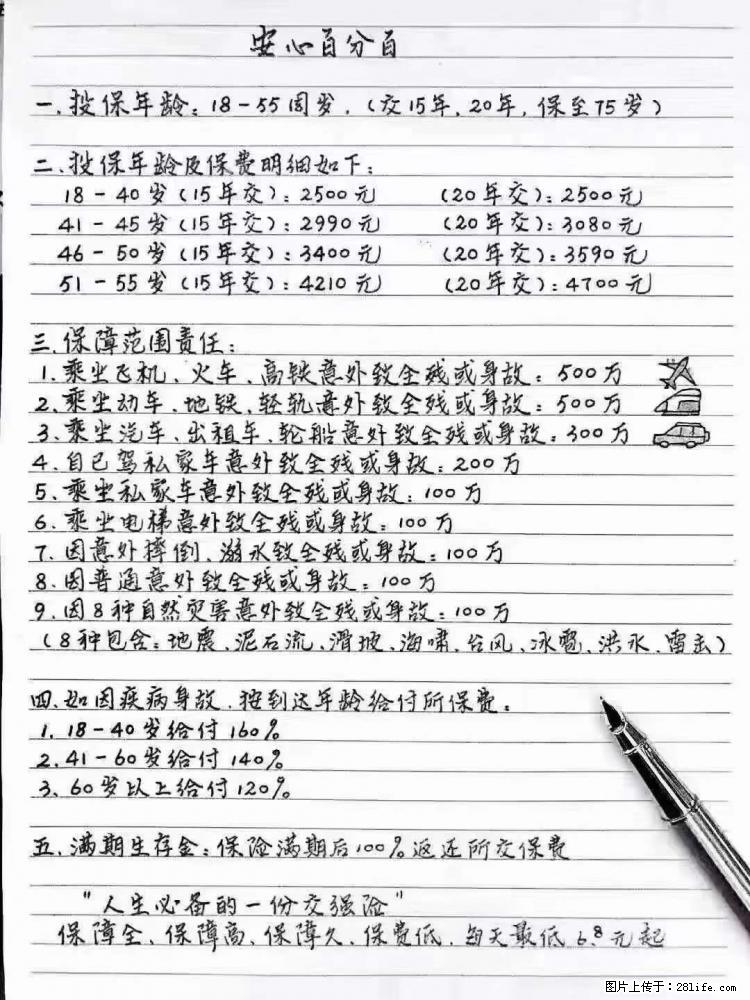 安心百分百
一、投保年龄：18-55周岁.（交15年,20年,保至75岁）
二、投保年龄及保费明细如下：
18-40岁（15年交）：2500元 （20年交）：2500元
41-45岁（15年交）：2990元 （20年交）：3080元
46-50岁（15年交）：3400元 （20年交）：3590元
51-55岁（15年交）：4210元 （20年交）：4700元
三、保障范围责任：
1.乘坐飞机、火车、高铁意外致全残或身故：500万
2.乘坐动车、地铁、轻轨意外致全残或身故：500万
3.乘坐汽车、出租车、轮船意外致全残或身故：300万
4.自己驾私家车意外致全残或身故：200万
5.乘坐私家车意外致全残或身故：100万
6.乘坐电梯意外致全残或身故：100万
7.因意外摔倒、溺水致全残或身故：100万
8.因普通意外致全残或身故：100万
9.因8种自然灾害意外致全残或身故：100万
（8种包含：地震、泥石流、滑坡、海啸、台风、冰雹、洪水、雷击）
四、如因疾病身故.按到达年龄给付所保费：
1.18-40岁给付160%
2.41-60岁给付140%
3.60岁以上给付120%
五、满期生存金：保险满期后100%返还所交保费
“人生必备的一份交强险”
保障全、保障高、保障久、保费低、每天最低6.8元起
图片上传于：281life.com